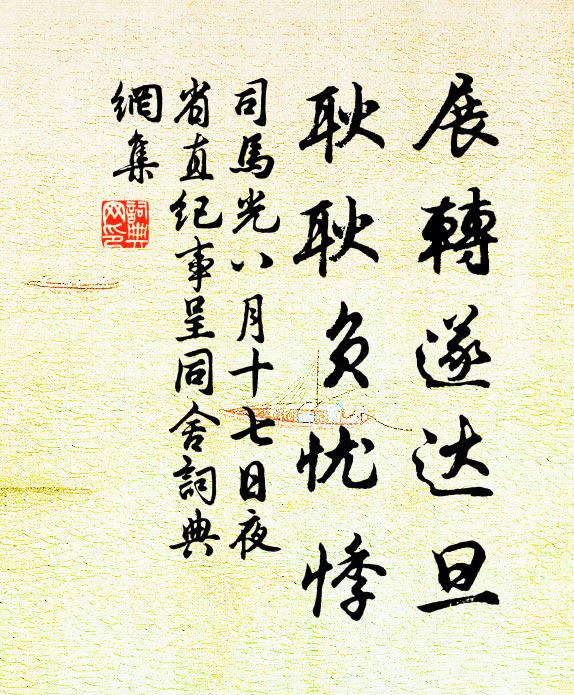 展轉遂达旦
耿耿负忧悸
司馬光八月十七日夜
省直纪事呈同舍詞典
網集
詞典
网印